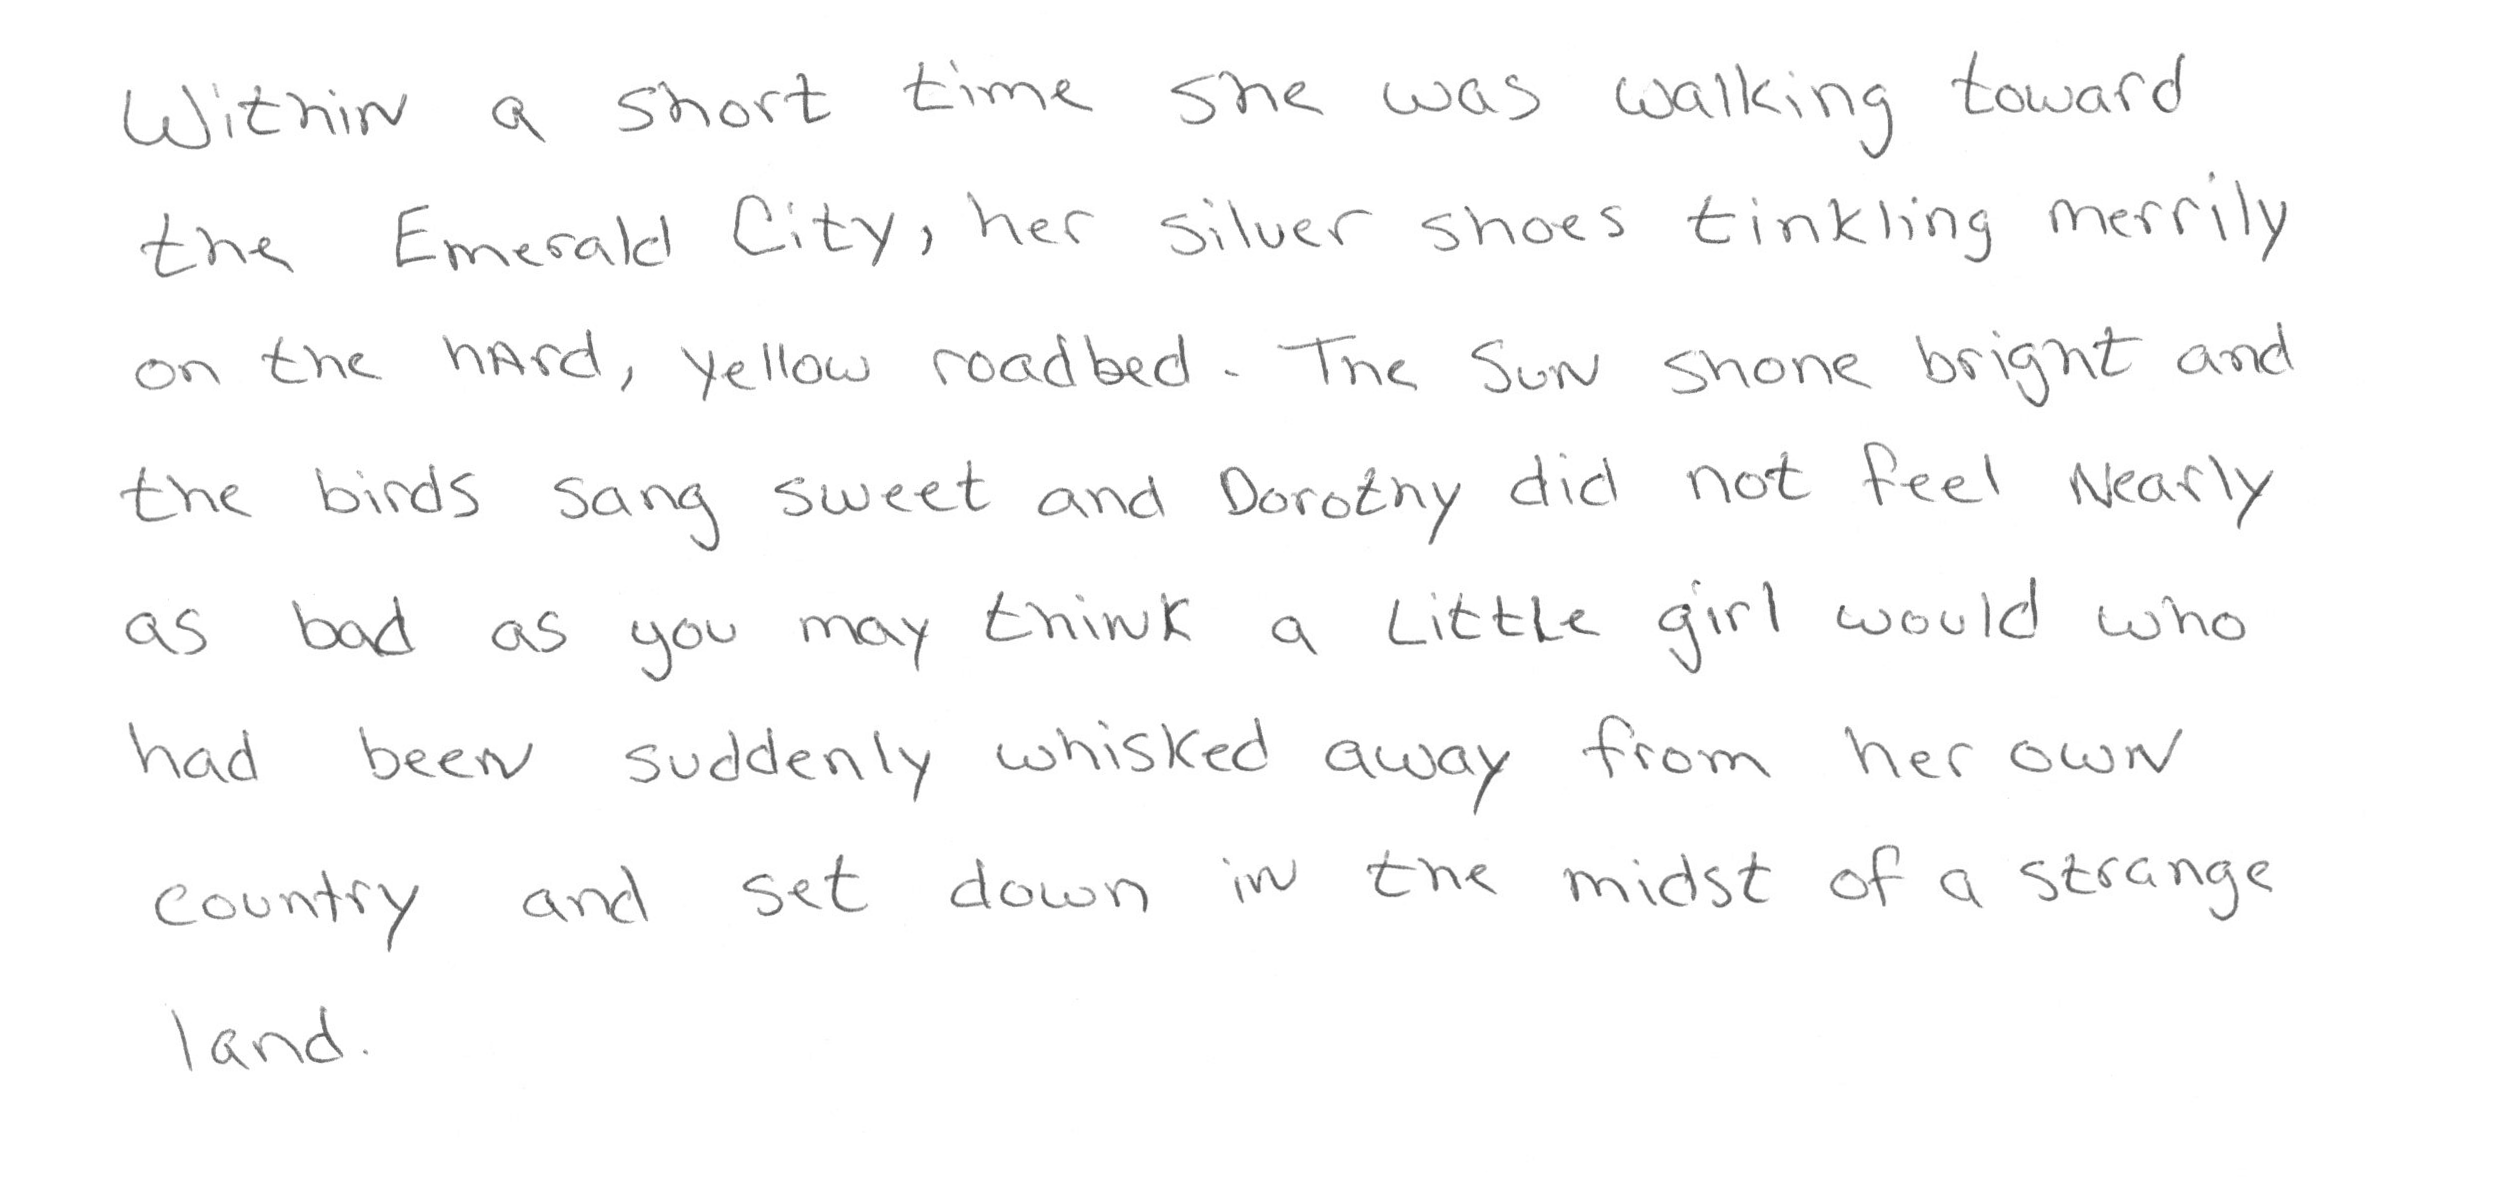 Within a short time she was walking toward
the Emerald City, her silver shoes tinkling merrily
on the hard, yellow roadbed. The sun shone bright and
the birds sang sweet and Dorothy did not feel nearly
as bad as you may think a little girl would who
had been suddenly whisked away from her own
country and set down in the midst of a strange
land.